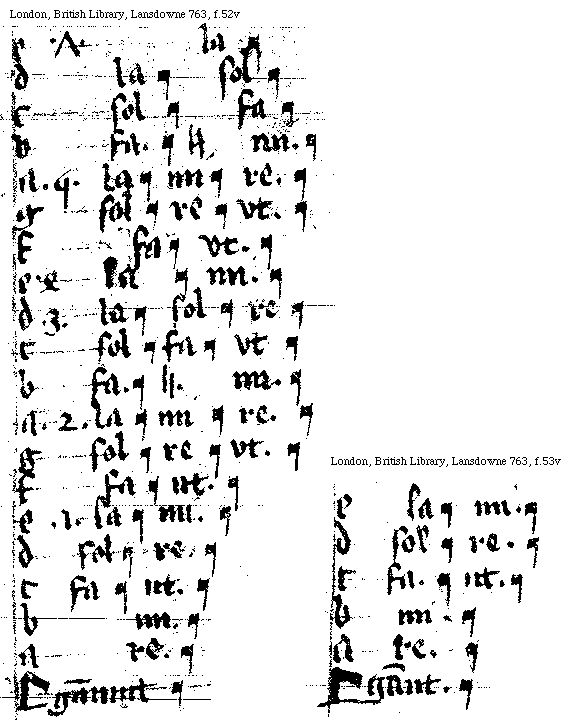 London, British Library, Lansdowne 763, f.52v
e .A. la
d la sol
c sol fa
b fa. ♮ mi.
a.4. la mi re.
g sol re vt.
f fa vt.
e la mi.
d .3. la sol re
c sol fa vt
b fa. ♮. mi.
a. 2. la mi re.
g sol re vt.
f fa ut.
e .1. la mi.
d sol re.
c fa ut.
b mi.
a re.
Γ gãmut
London, British Library, Lansdowne 763, f.53v
e la mi.
d sol re.
c fa. ut.
b mi.
a re.
Γ gãut.